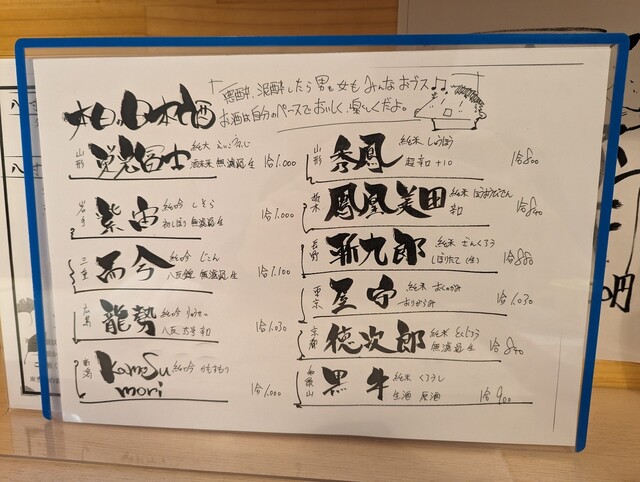 本日の日本酒
「悪酔、泥酔したら男も女もみんなおブス♪
お酒は自分のペースでおいしく、楽しくだよ。
山形 栄冨士 純大
酒未来 無濾過生 1合1.000
岩手 紫宙 純吟 しそら
初しぼり 無濾過生 1合1.000
三重 而今 純吟 じこん
八反錦 無濾過生 1合1.100
広島 龍勢 純吟 りゅうせい
八反 35号 辛口 1合1.030
新潟 KamoSu mori 純吟 かもすもり 1合1.000
山形 秀鳳 純米 しゅうほう
超辛口 +10 1合800
栃木 鳳凰美田 純米 ほうおうびでん
辛口 1合840
長野 斬九郎 純米 ざんくろう
しぼりたて (生) 1合880
東京 屋守 純米 おくのかみ
おりがらみ 1合1.030
京都 徳次郎 純米 とくじろう
無濾過生 1合840
和歌山 黒牛 純米 くろうし
生酒 原酒 1合900
円